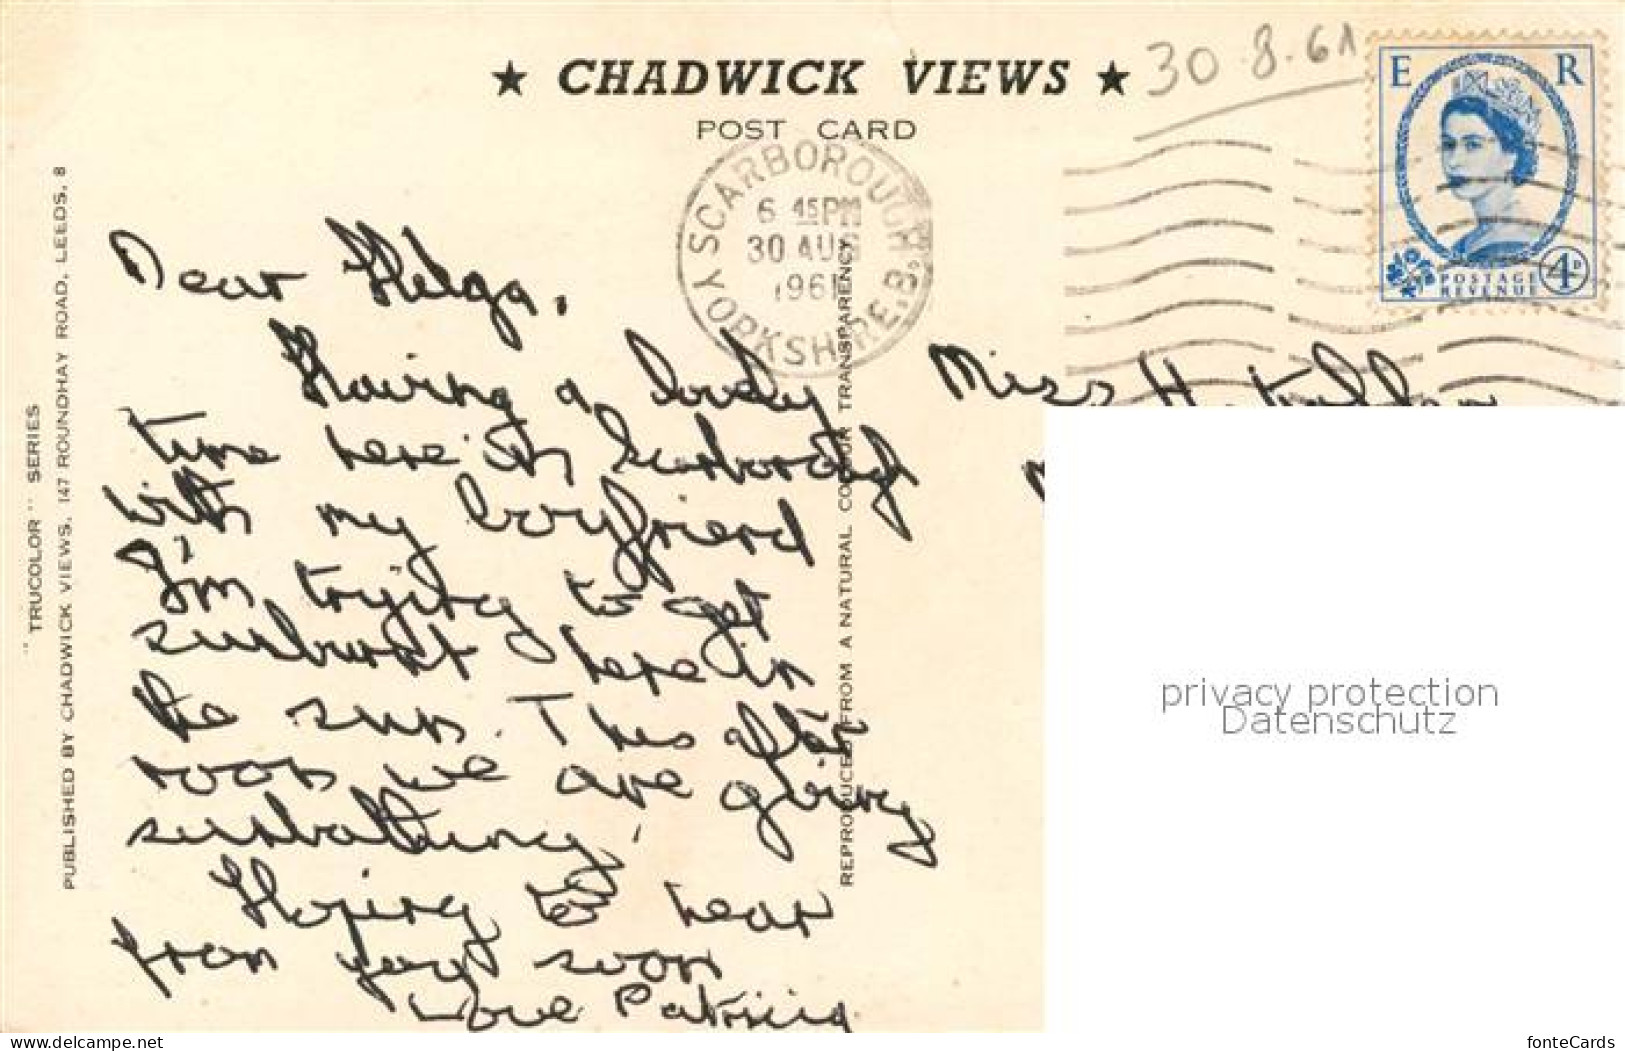 ★ CHADWICK VIEWS ★
POST CARD
30.8.61
E R
POSTAGE
REVENUE
4D
SCARBOROUGH
6 45PM
30 AUG
1961
YORKSHIRE. B.
"TRUCOLOR" SERIES
PUBLISHED BY CHADWICK VIEWS, 147 ROUNDHAY ROAD, LEEDS, 8
REPRODUCED FROM A NATURAL COLOUR TRANSPARENCY
Dear Helga,
Having a lovely
time here in Scarborough
with my boyfriend
I'm trying to get
sunburnt here in
the sun. This after
noon we are going
sunbathing.
Hoping to hear
from you soon
Love Patricia
Miss H.
privacy protection
Datenschutz
www.delcampe.net
fonteCards